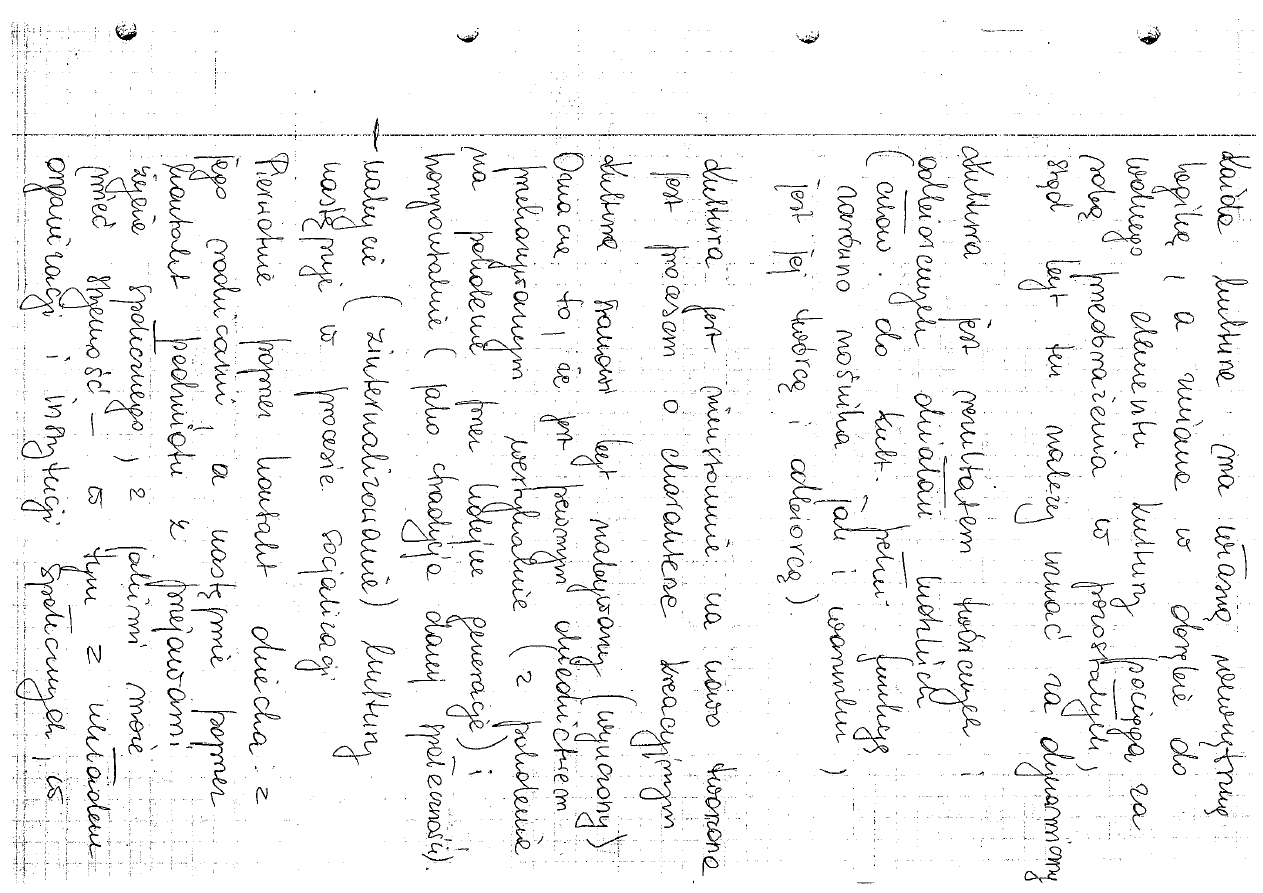 Każda kulturę ma własną wewnętrzną
logikę, a zmiana w obrębie do
wolnego elementu kultury pociąga za
sobą przeobrażenia w pozostałych,
stąd byt ten należy uznać za dynamiczny
Kultura jest rezultatem twórczych i
odbiorczych działań ludzkich
(człow. do kult. pełni funkcję
zarówno nośnika jak i warunku,
jest jej twórcą i odbiorcą)
Kultura jest nieustannie na nowo tworzona
jest procesem o charakterze kreacyjnym
Kulturę stanowi byt nabywany (wyuczony)
Oznacza to, że jest pewnym dziedzictwem
przekazywanym wertykalnie (z pokolenia
na pokolenie przez kolejne generacje) i
horyzontalnie (jako tradycja danej społeczności).
– nabycie (zinternalizowanie) kultury
następuje w procesie socjalizacji
Pierwotnie poprzez kontakt dziecka z
jego rodzicami, a następnie poprzez
kontakt podmiotu z przejawami
życia społecznego, z jakimi może
mieć styczność – w tym z układem
organizacji i instytucji społecznych, w